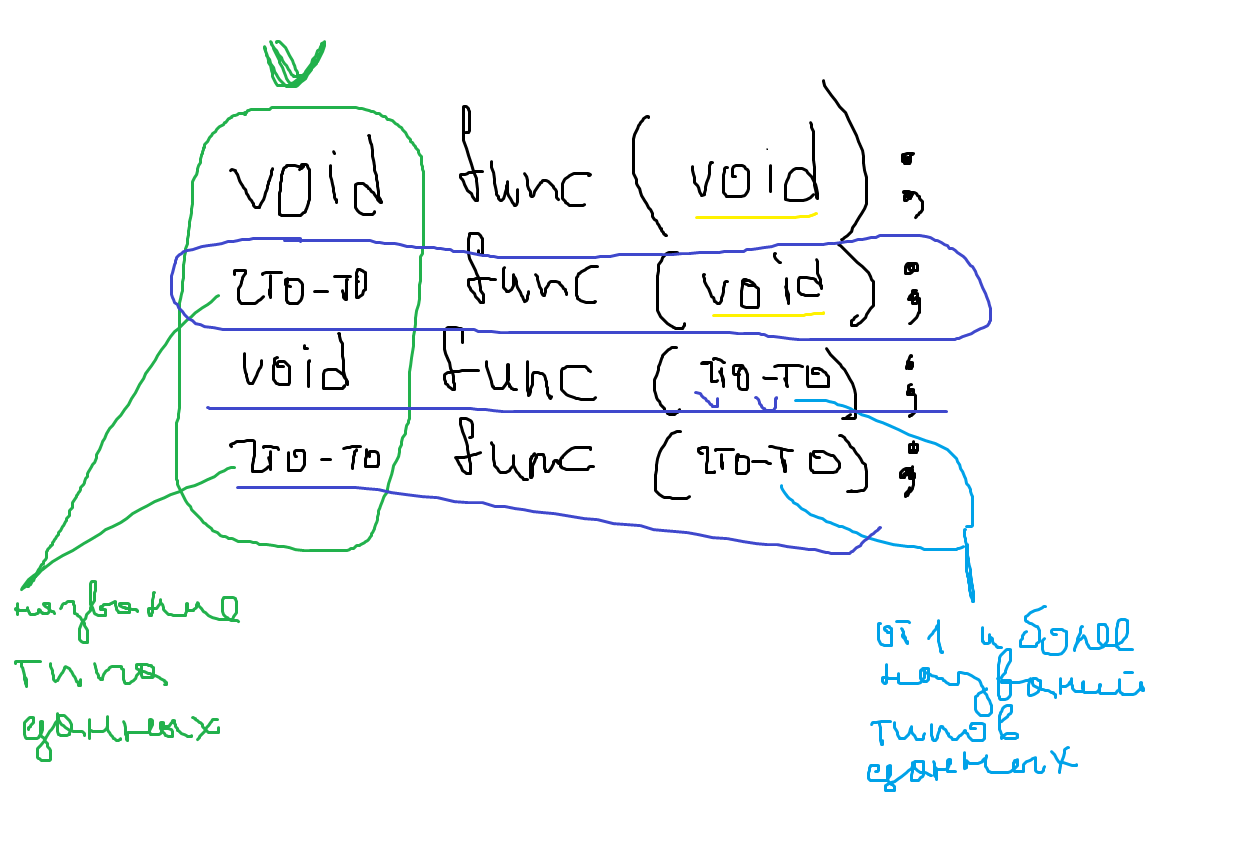 void func (void);
что-то func (void);
void func (что-то);
что-то func (что-то);
название
типа
данных
от 1 и более
названий
типов
данных